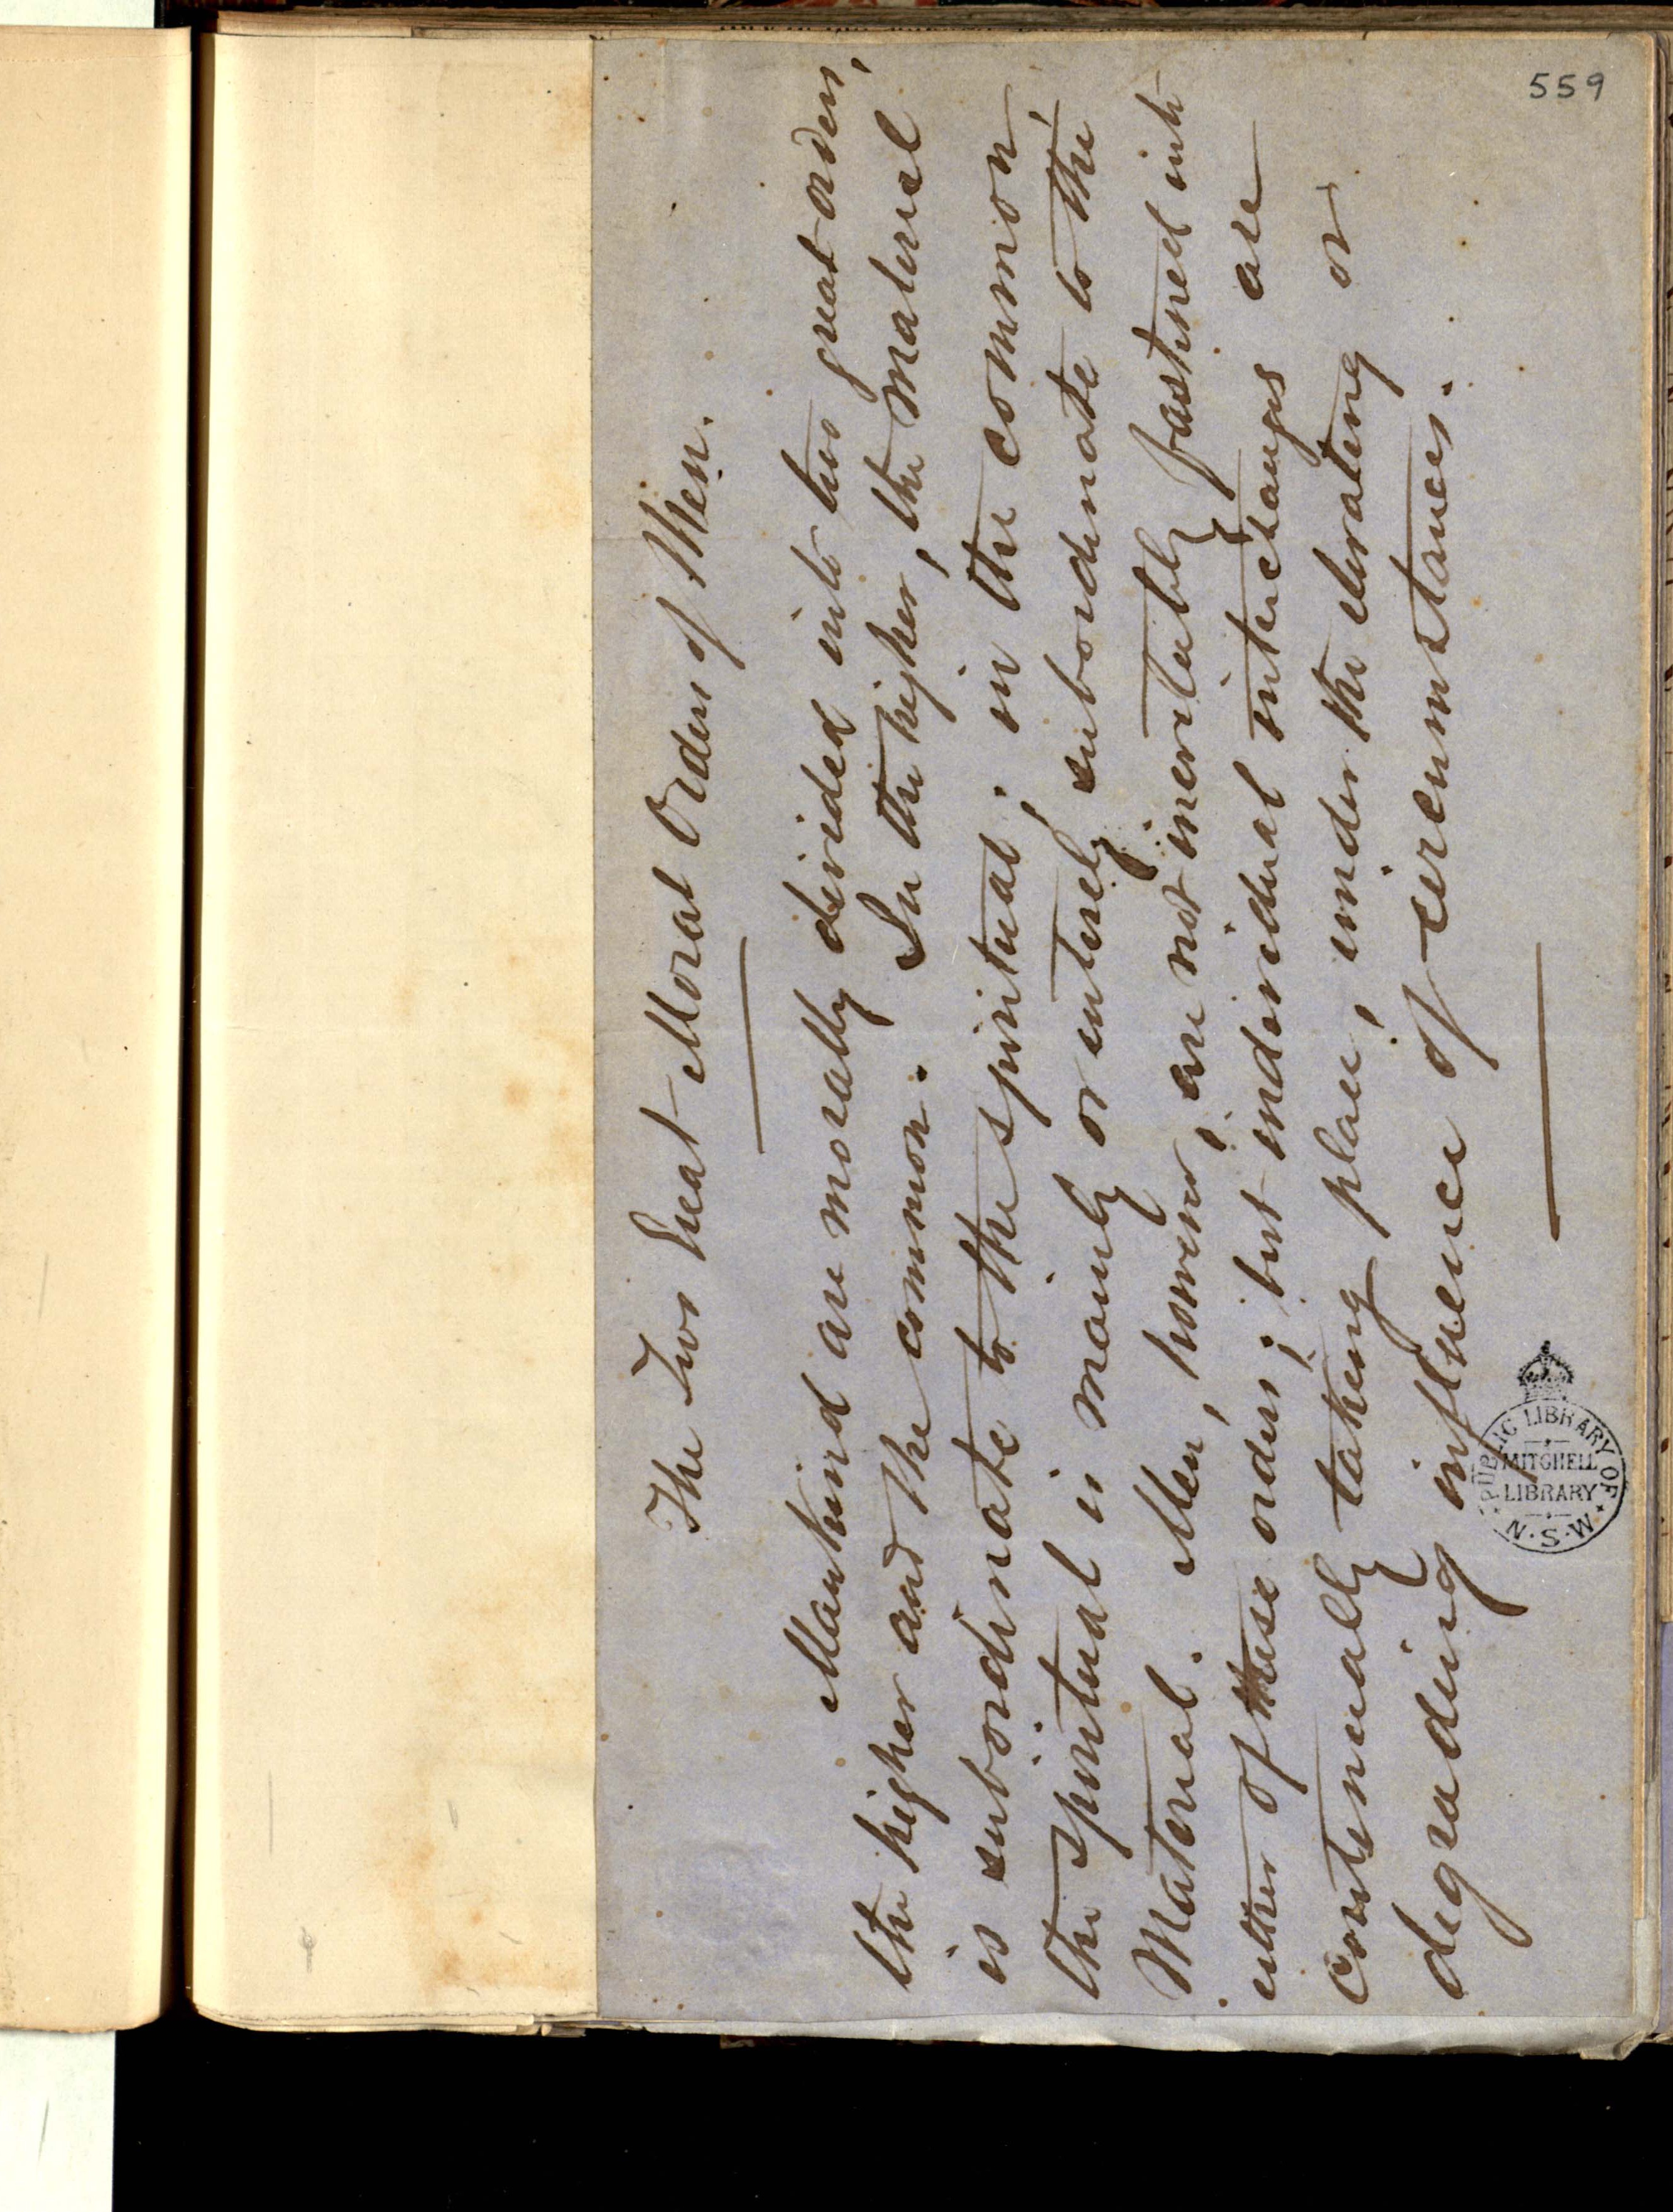 559
The Two Great Moral Orders of Men.
Mankind are morally divided into two great orders,
the higher and the common. In the higher, the material
is subordinate to the spiritual; in the common,
the spiritual is mainly or entirely subordinate to the
Material. Men, however, are not inevitably fastened into
either of these orders; but individual interchanges are
continually taking place, under the elevating or
degrading influence of circumstances.
PUBLIC LIBRARY OF N.S.W.
MITCHELL
LIBRARY